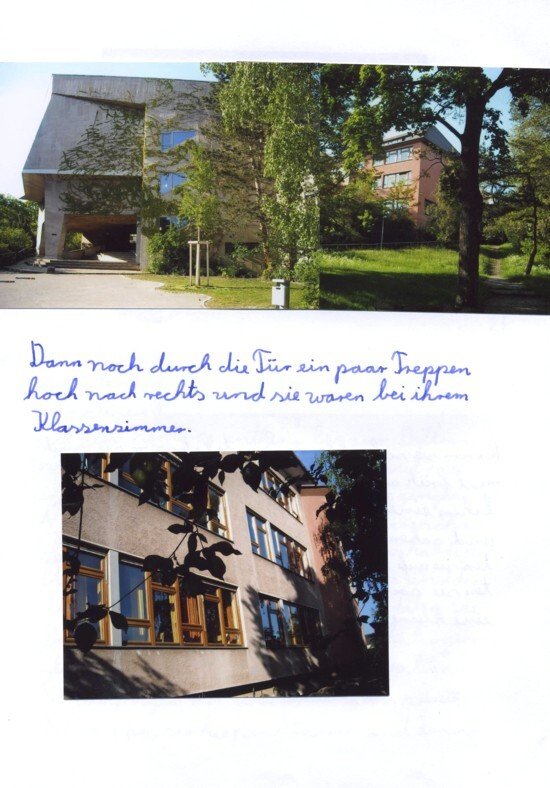 Dann noch durch die Tür ein paar Treppen
hoch nach rechts und sie waren bei ihrem
Klassenzimmer.